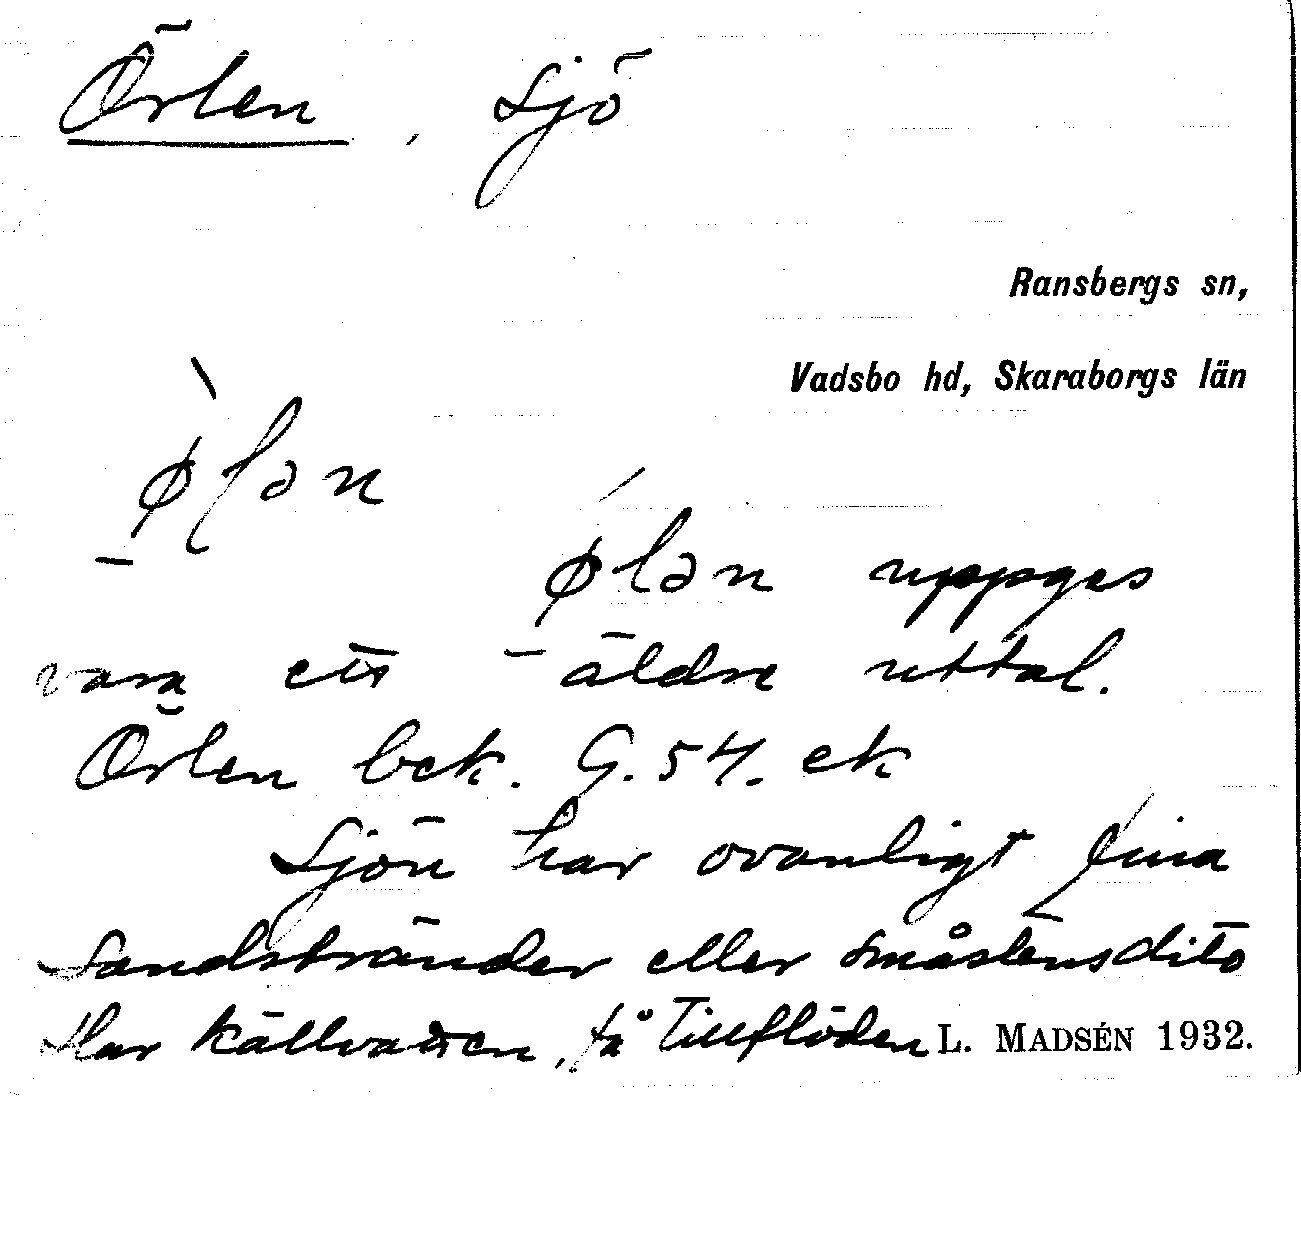 Örlen, Sjö
Ransbergs sn,
Vadsbo hd, Skaraborgs län
ø̀lən
øĺən uppges
vara ett äldre uttal.
Örlen bek. G.54. ek
Sjön har ovanligt fina
Sandstränder eller småstensdito
Har källvatten, få tillflöden L. MADSÉN 1932.